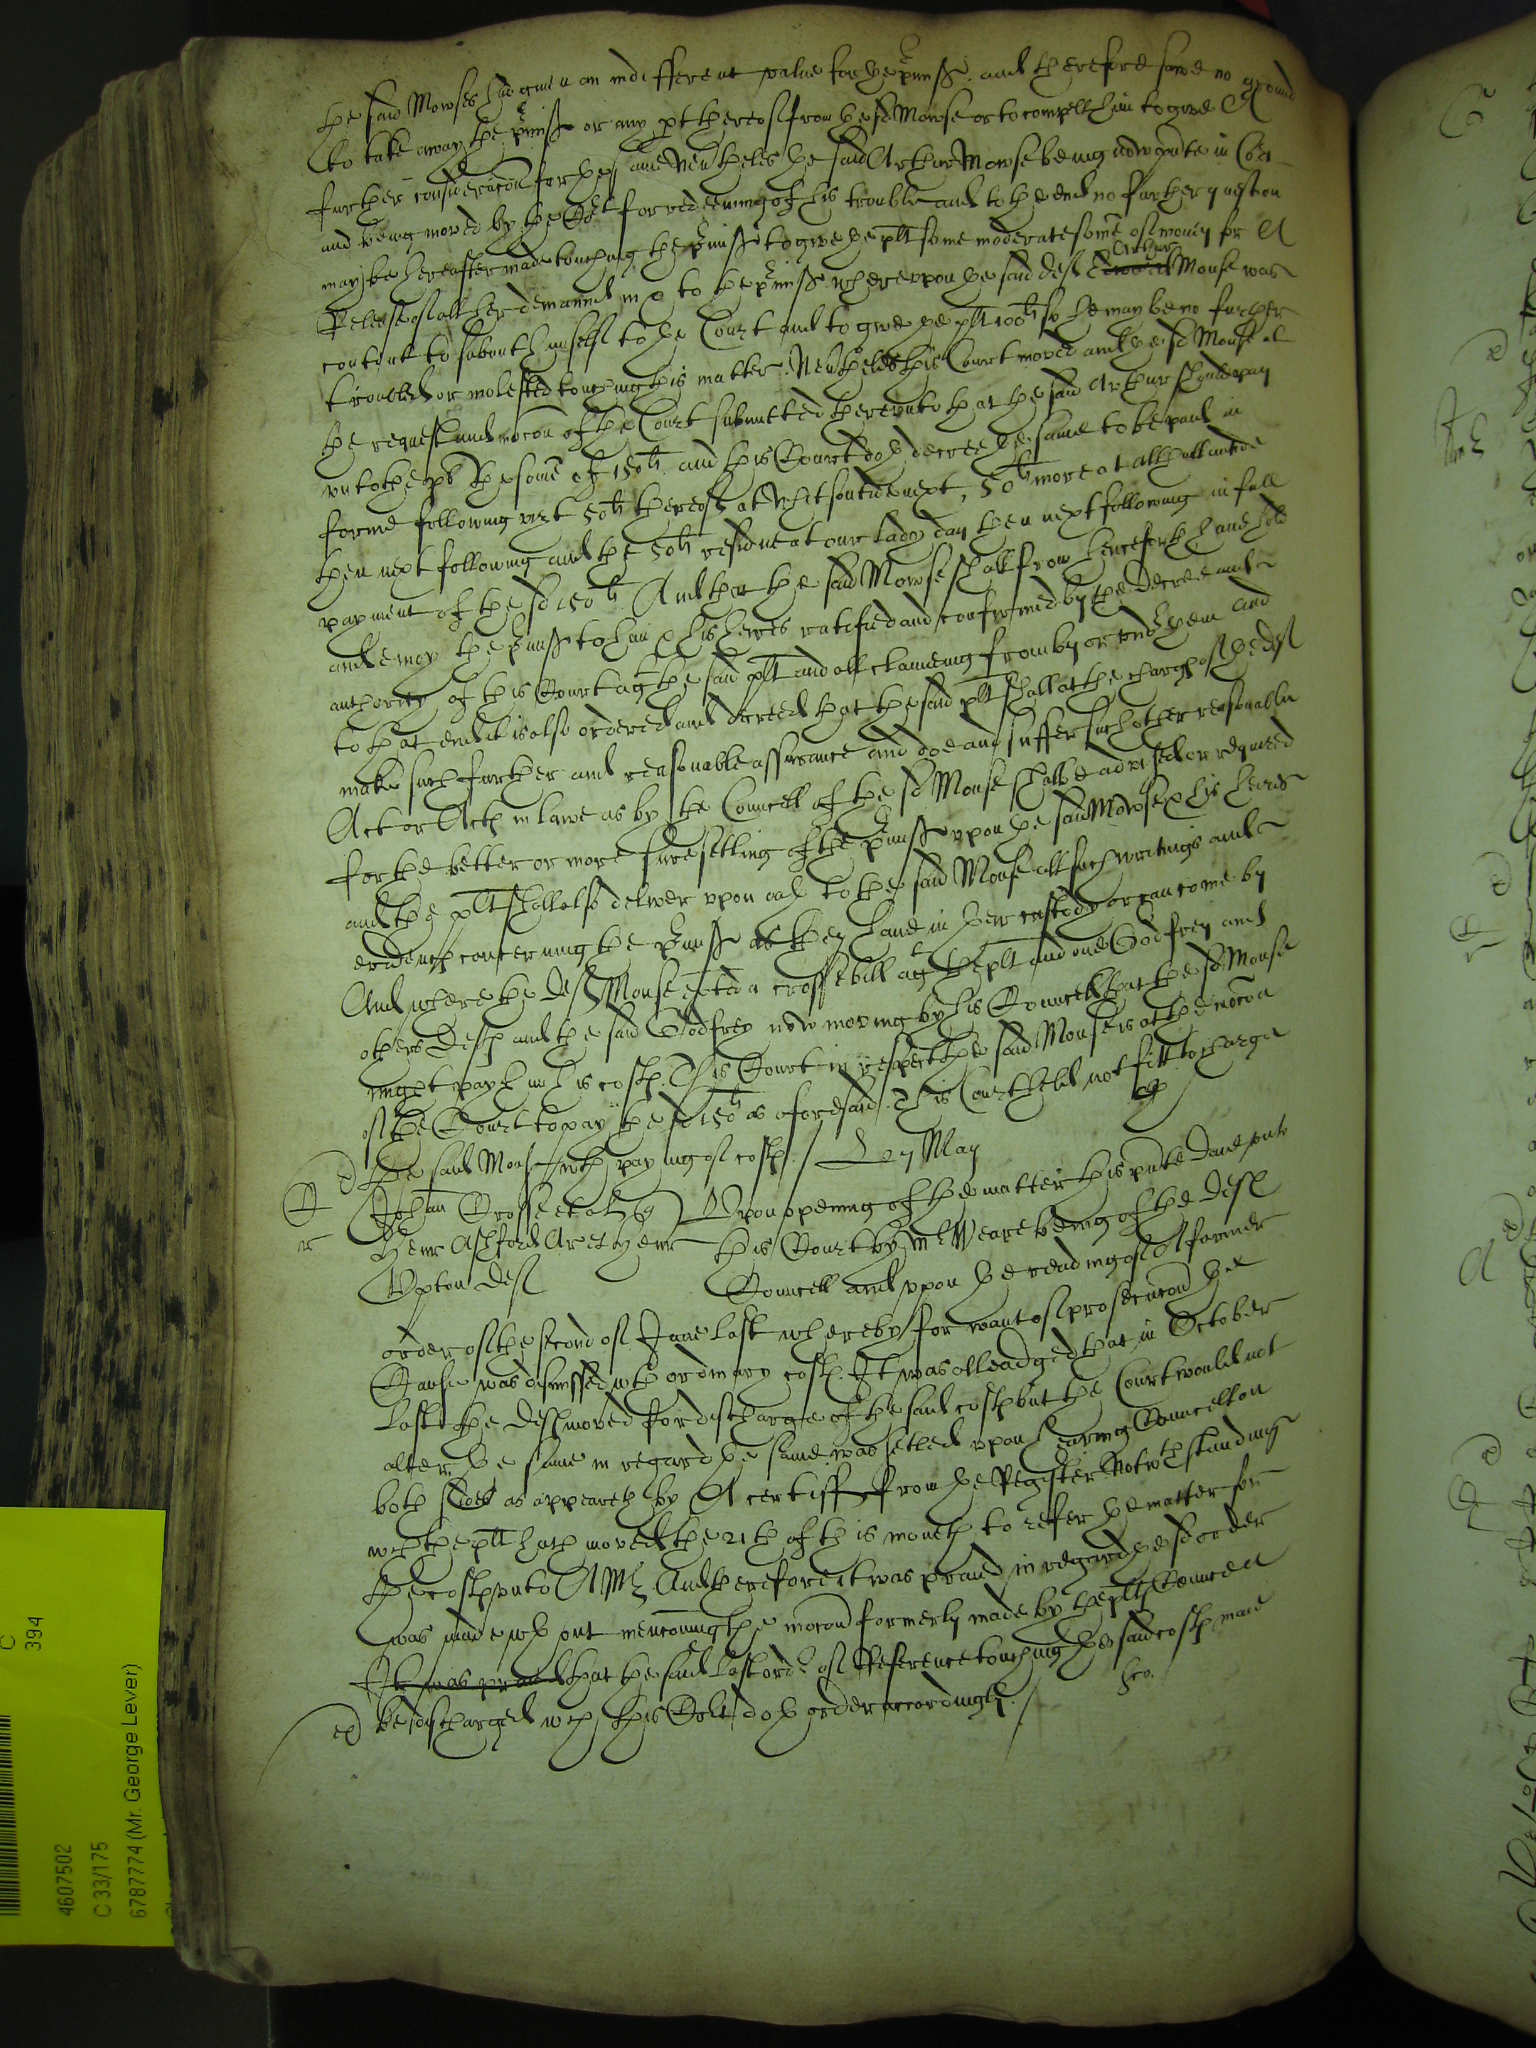 the said Mowses had given an indifferent value for the p'miss. and therefore sawe no ground
to take away the p'miss or any pt thereof from the sd Mowse or to compell him to give A
further consideracon for the same Nev'theles the said Arthur Mowse being now p'nte in Co'rt
and being moved by the Co'rt for redeeming of his trouble and to the end no further question
may be hereafter made touching the p'miss to give the plt some moderate some of money for A
Release of all her demannd in & to the p'miss whereuppon the said deft Arthur Mouse was
content to submitt himselfe to the Court and to give the plt 100li so he may be no further
troubled or molested touching this matter. Nev'theles this Court moved and the sd Mouse at
the request and mocon of the Court submitted thereunto that the said Arthur should pay
unto the plt the some of 150li. and this Court doth decree the same to be paid in
forme following vizt 50li thereof at Whitsontide next, 50li more at Alhallantide
then next following and the 50li residue at our Lady day then next following in full
payment of the sd 150li. And that the said Mowse shall from henceforth have hold
and enioy the p'miss to him & his heires ratified and confirmed by the decree and
authority of this Court agt the said plt and all claimeing from by or under them and
to that end it is also ordered and decreed that the said plt shall at the charges of the deft
make such further and reasonable assurance and doe and suffer such other reasonable
Act or Acts in lawe as by the Councell of the sd Mouse shalbe advised or required
for the better or more sure setling of the p'miss upon the said Mowse & his heires
and the plt shall also deliver upon oath to the said Mouse all such writings and
evidences concerning the p'miss as they have in their custody or can come by
And where the deft Mouse exted a crosse bill agt the plt and one Godfrey and
others Defts and the said Godfrey now moving by his Councell that the sd Mouse
might pay him his costs. This Court in respect the said Mouse is at the mocon
of the Court to pay the sd 150li as aforesaid. This Court held not fitt to charge
the said Mouse wth paying of costs.
27 May
Upon opening of the matter this p'nte daie unto
Henr Ashford Ar et Henr
this Court by Mr Weare being of the Defts
Upton Deft
Councell and upon the reading of A former
order of the second of June last whereby for want of prosecucon the
Cause was dismissed wth ordinary costs. It was alleadged that in October
last the Defts moved for discharge of the said costs but the Court would not
alter the same in regard the same was setled upon hearing Councell on
both sides as appeareth by A certiff from the Register Notwthstanding
wch the plt hath moved the 21th of this moneth to refer the matter for
the costs unto A Mr And therefore it was praied in regard the sd order
was made wthout mencoing the mocon formerly made by the plts Councell
It was praied that the said last ord'r of Reference touching the said costs maie
be discharged wch this Court doth order accordingly.
4607502
C 33/175
6787774 (Mr. George Lever)
C
394